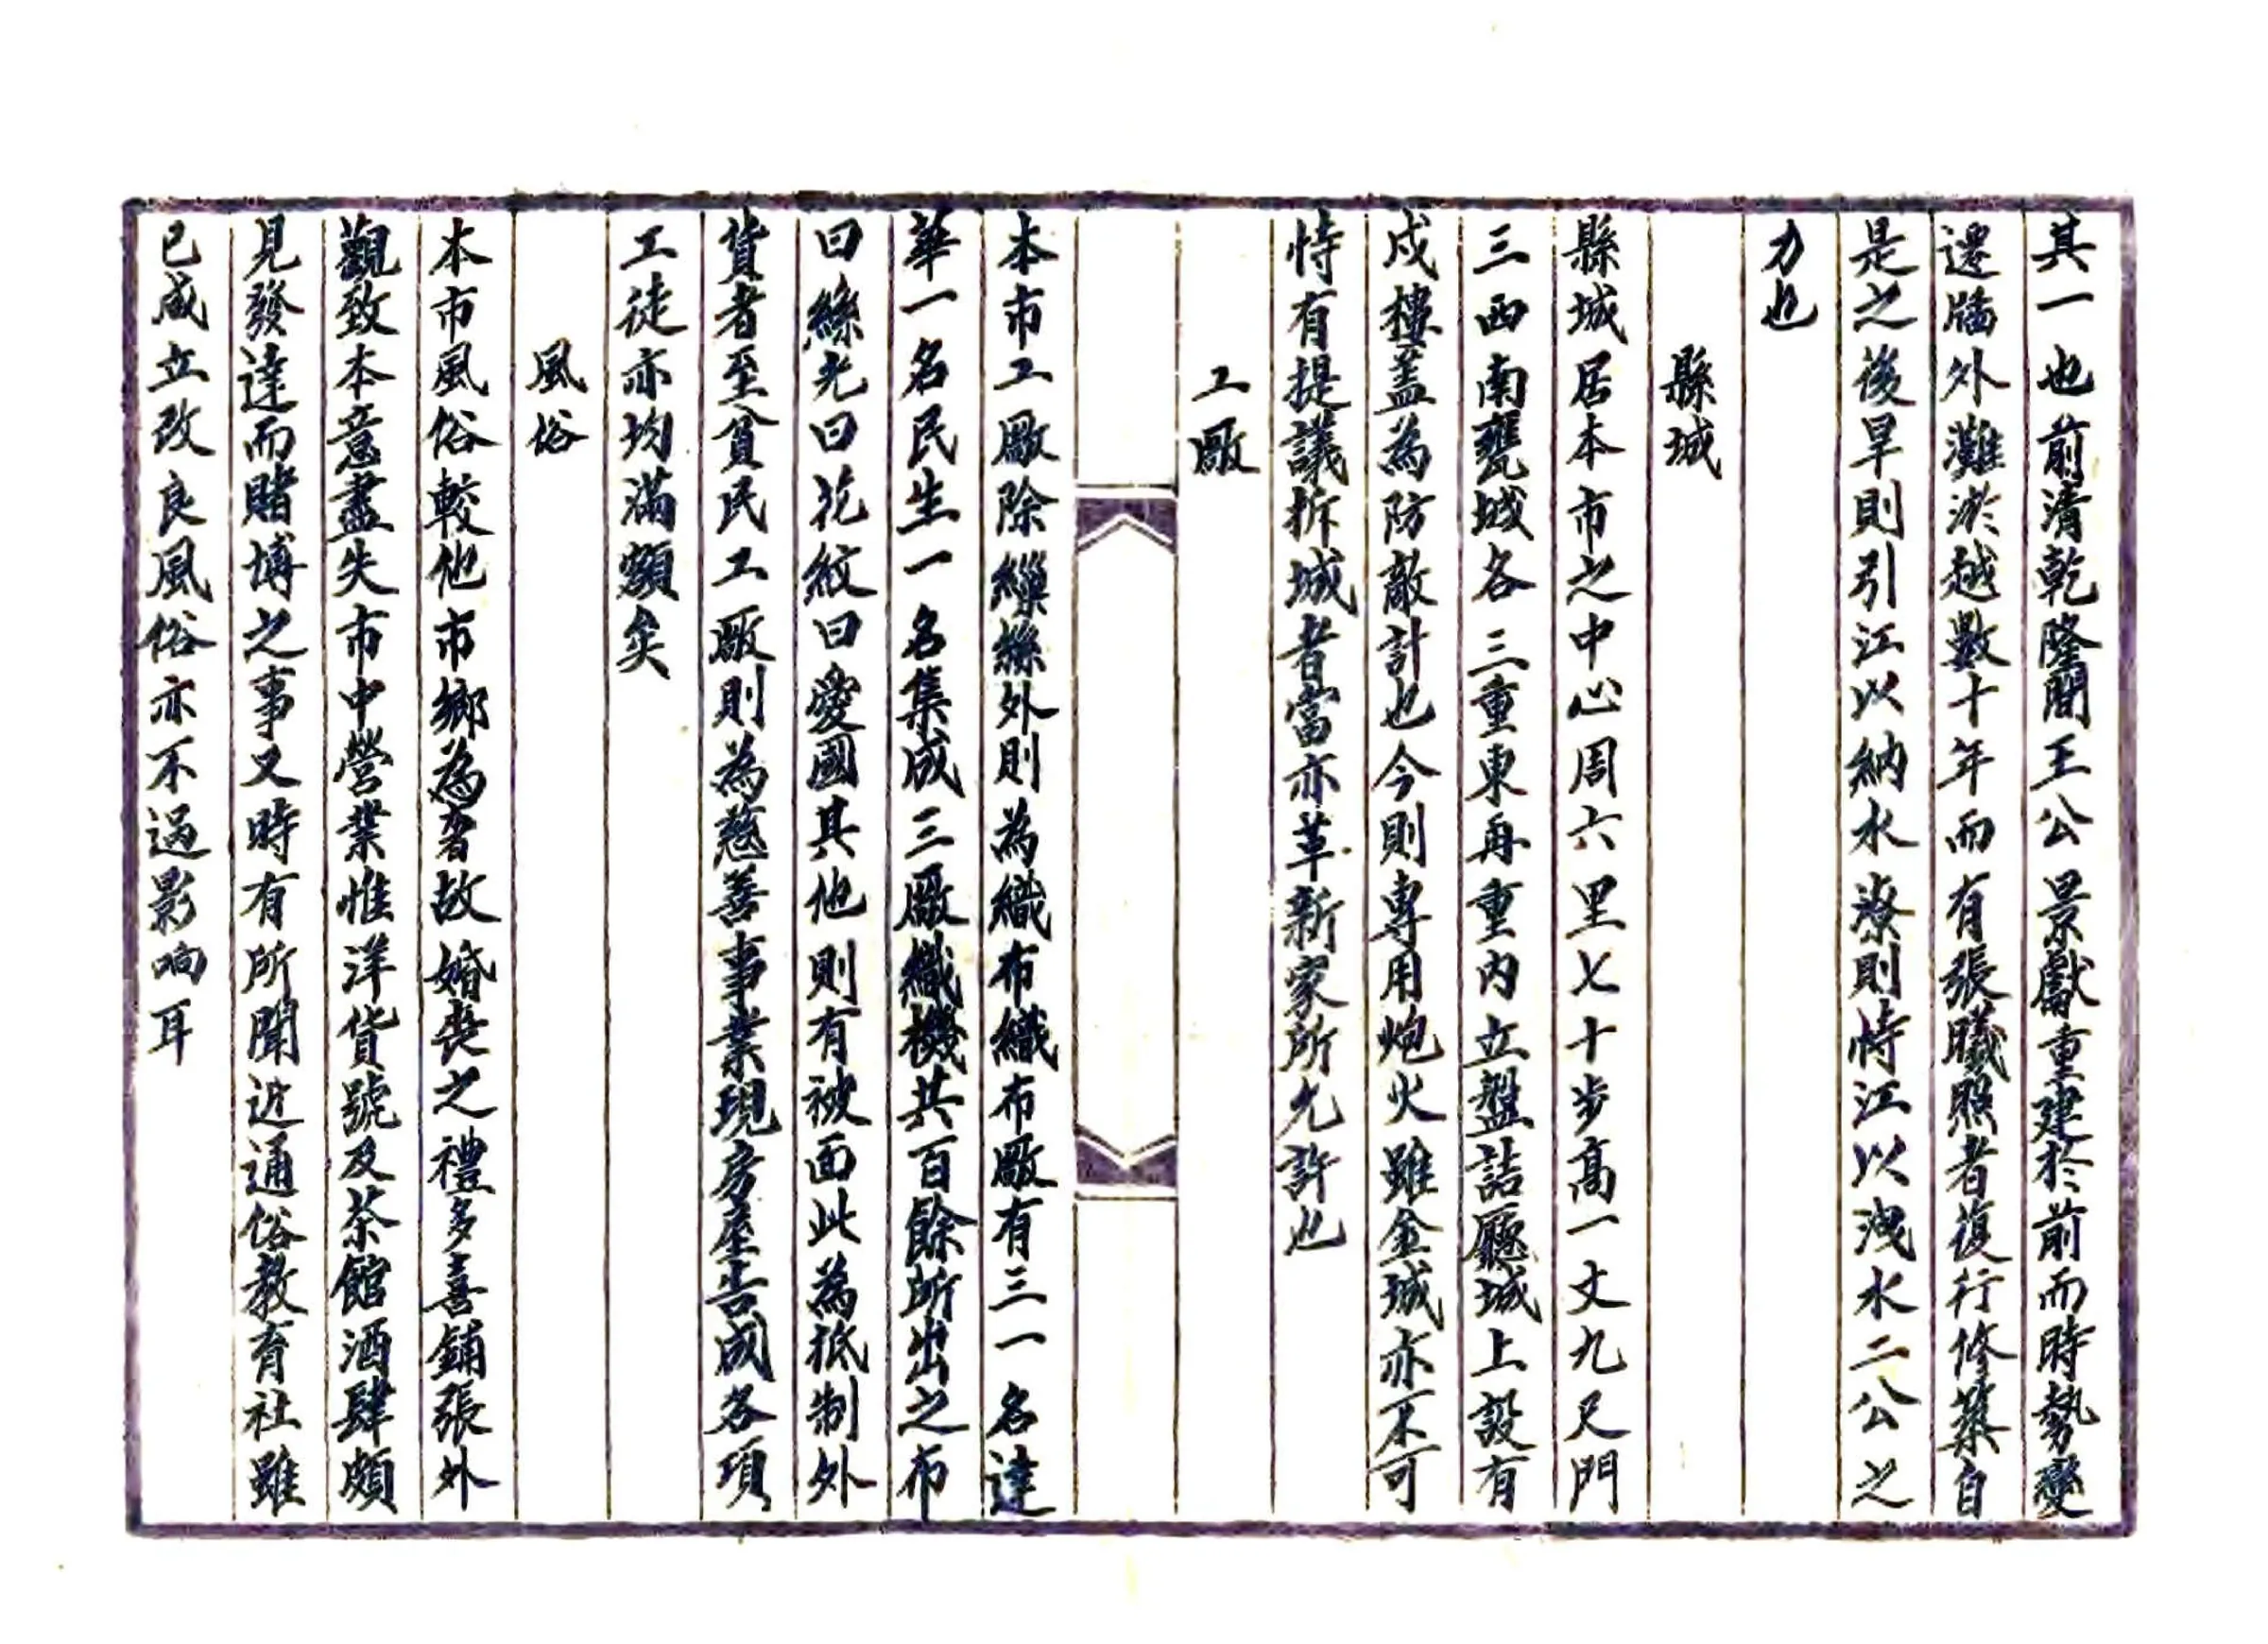 其一也前清乾隆間王公景獻重建於前而時勢變
遷牐外灘淤越數十年而有張曦照者復行修築自
是之後旱則引江以納水潦則恃江以洩水二公之
力也
縣城
縣城居本市之中心周六里七十步高一丈九尺門
三西南甕城各三重東再重內立盤詰廳城上設有
戍樓蓋為防敵計也今則專用炮火雖金城亦不可
恃有提議拆城者當亦革新家所允許也
工廠
本市工廠除繅絲外則為織布織布廠有三一名達
華一名民生一名集成三廠織機共百餘所出之布
曰絲光曰花紋曰愛國其他則有被面此為抵制外
貨者至貧民工廠則為慈善事業現房屋告成各項
工徒亦均滿額矣
風俗
本市風俗較他市鄉為奢故婚喪之禮多喜鋪張外
觀致本意盡失市中營業惟洋貨號及茶館酒肆頗
見發達而賭博之事又時有所聞近通俗教育社雖
已成立改良風俗亦不過影响耳